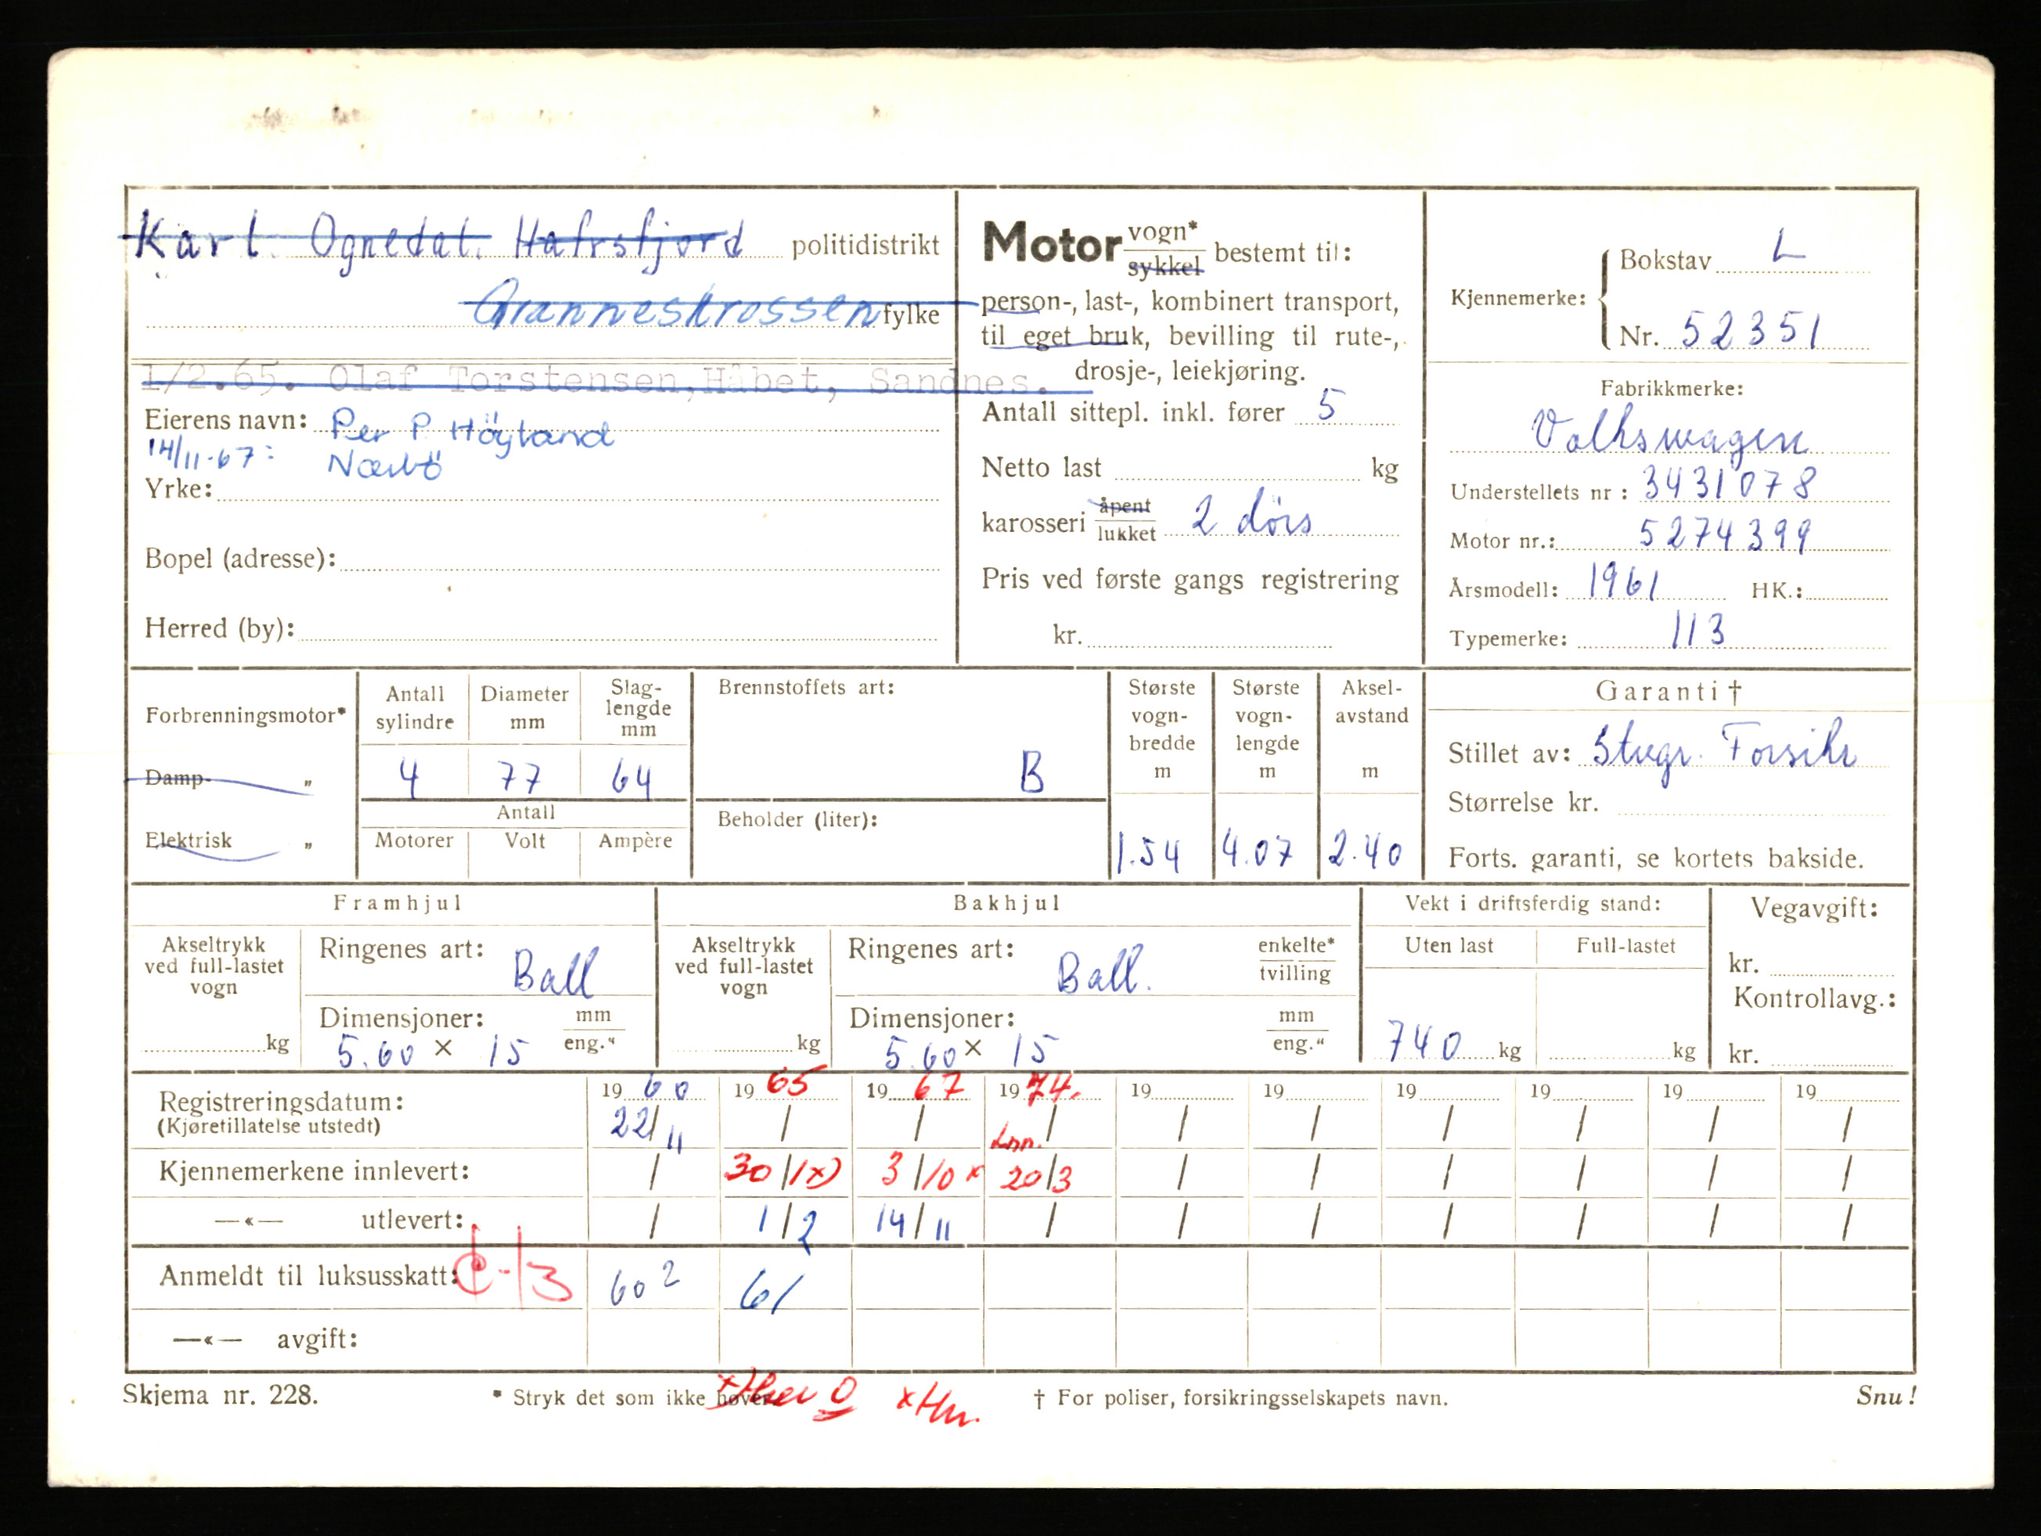 Karl Ognedal. Hafrsfjord politidistrikt
Granneskrossen fylke
1/2.65. Olaf Torstensen, Håbet, Sandnes.
Eierens navn: Per P Höyland
14/11-67: Nærbö
Yrke:
Bopel (adresse):
Herred (by):
Motor vogn* sykkel bestemt til:
person-, last-, kombinert transport,
til eget bruk, bevilling til rute-,
drosje-, leiekjøring.
Antall sittepl. inkl. fører 5
Netto last kg
karosseri åpent lukket 2 dørs
Pris ved første gangs registrering
kr.
Kjennemerke: Bokstav L
Nr. 52351
Fabrikkmerke:
Volkswagen
Understellets nr: 3431078
Motor nr.: 5274399
Årsmodell: 1961 HK.:
Typemerke: 113
Forbrenningsmotor*
Damp- "
Elektrisk "
Antall sylindre
Diameter mm
Slag-lengde mm
4 77 64
Antall
Motorer Volt Ampère
Brennstoffets art:
B
Beholder (liter):
Største vogn-bredde m
1.54
Største vogn-lengde m
4.07
Aksel-avstand m
2.40
Garanti †
Stillet av: Stvgr. Forsikr
Størrelse kr.
Forts. garanti, se kortets bakside.
Framhjul
Akseltrykk ved full-lastet vogn
kg
Ringenes art: Ball
Dimensjoner: mm eng."
5.60 × 15
Bakhjul
Akseltrykk ved full-lastet vogn
kg
Ringenes art: Ball. enkelte* tvilling
Dimensjoner: mm eng."
5.60 × 15
Vekt i driftsferdig stand:
Uten last Full-lastet
740 kg kg
Vegavgift:
kr.
Kontrollavg.:
kr.
19 60 19 65 19 67 19 74. 19 19 19 19 19 19
Registreringsdatum: 22/11 / / / / / / / / /
(Kjøretillatelse utstedt)
Lnn.
Kjennemerkene innlevert: / 30/1 x) 3/10 x 20/3 / / / / / /
—«— utlevert: / 1/2 14/11 / / / / / / /
Anmeldt til luksusskatt: 60 2 61
—«— avgift:
Skjema nr. 228.
* Stryk det som ikke høver.
x Hn.
† For poliser, forsikringsselskapets navn.
Snu!